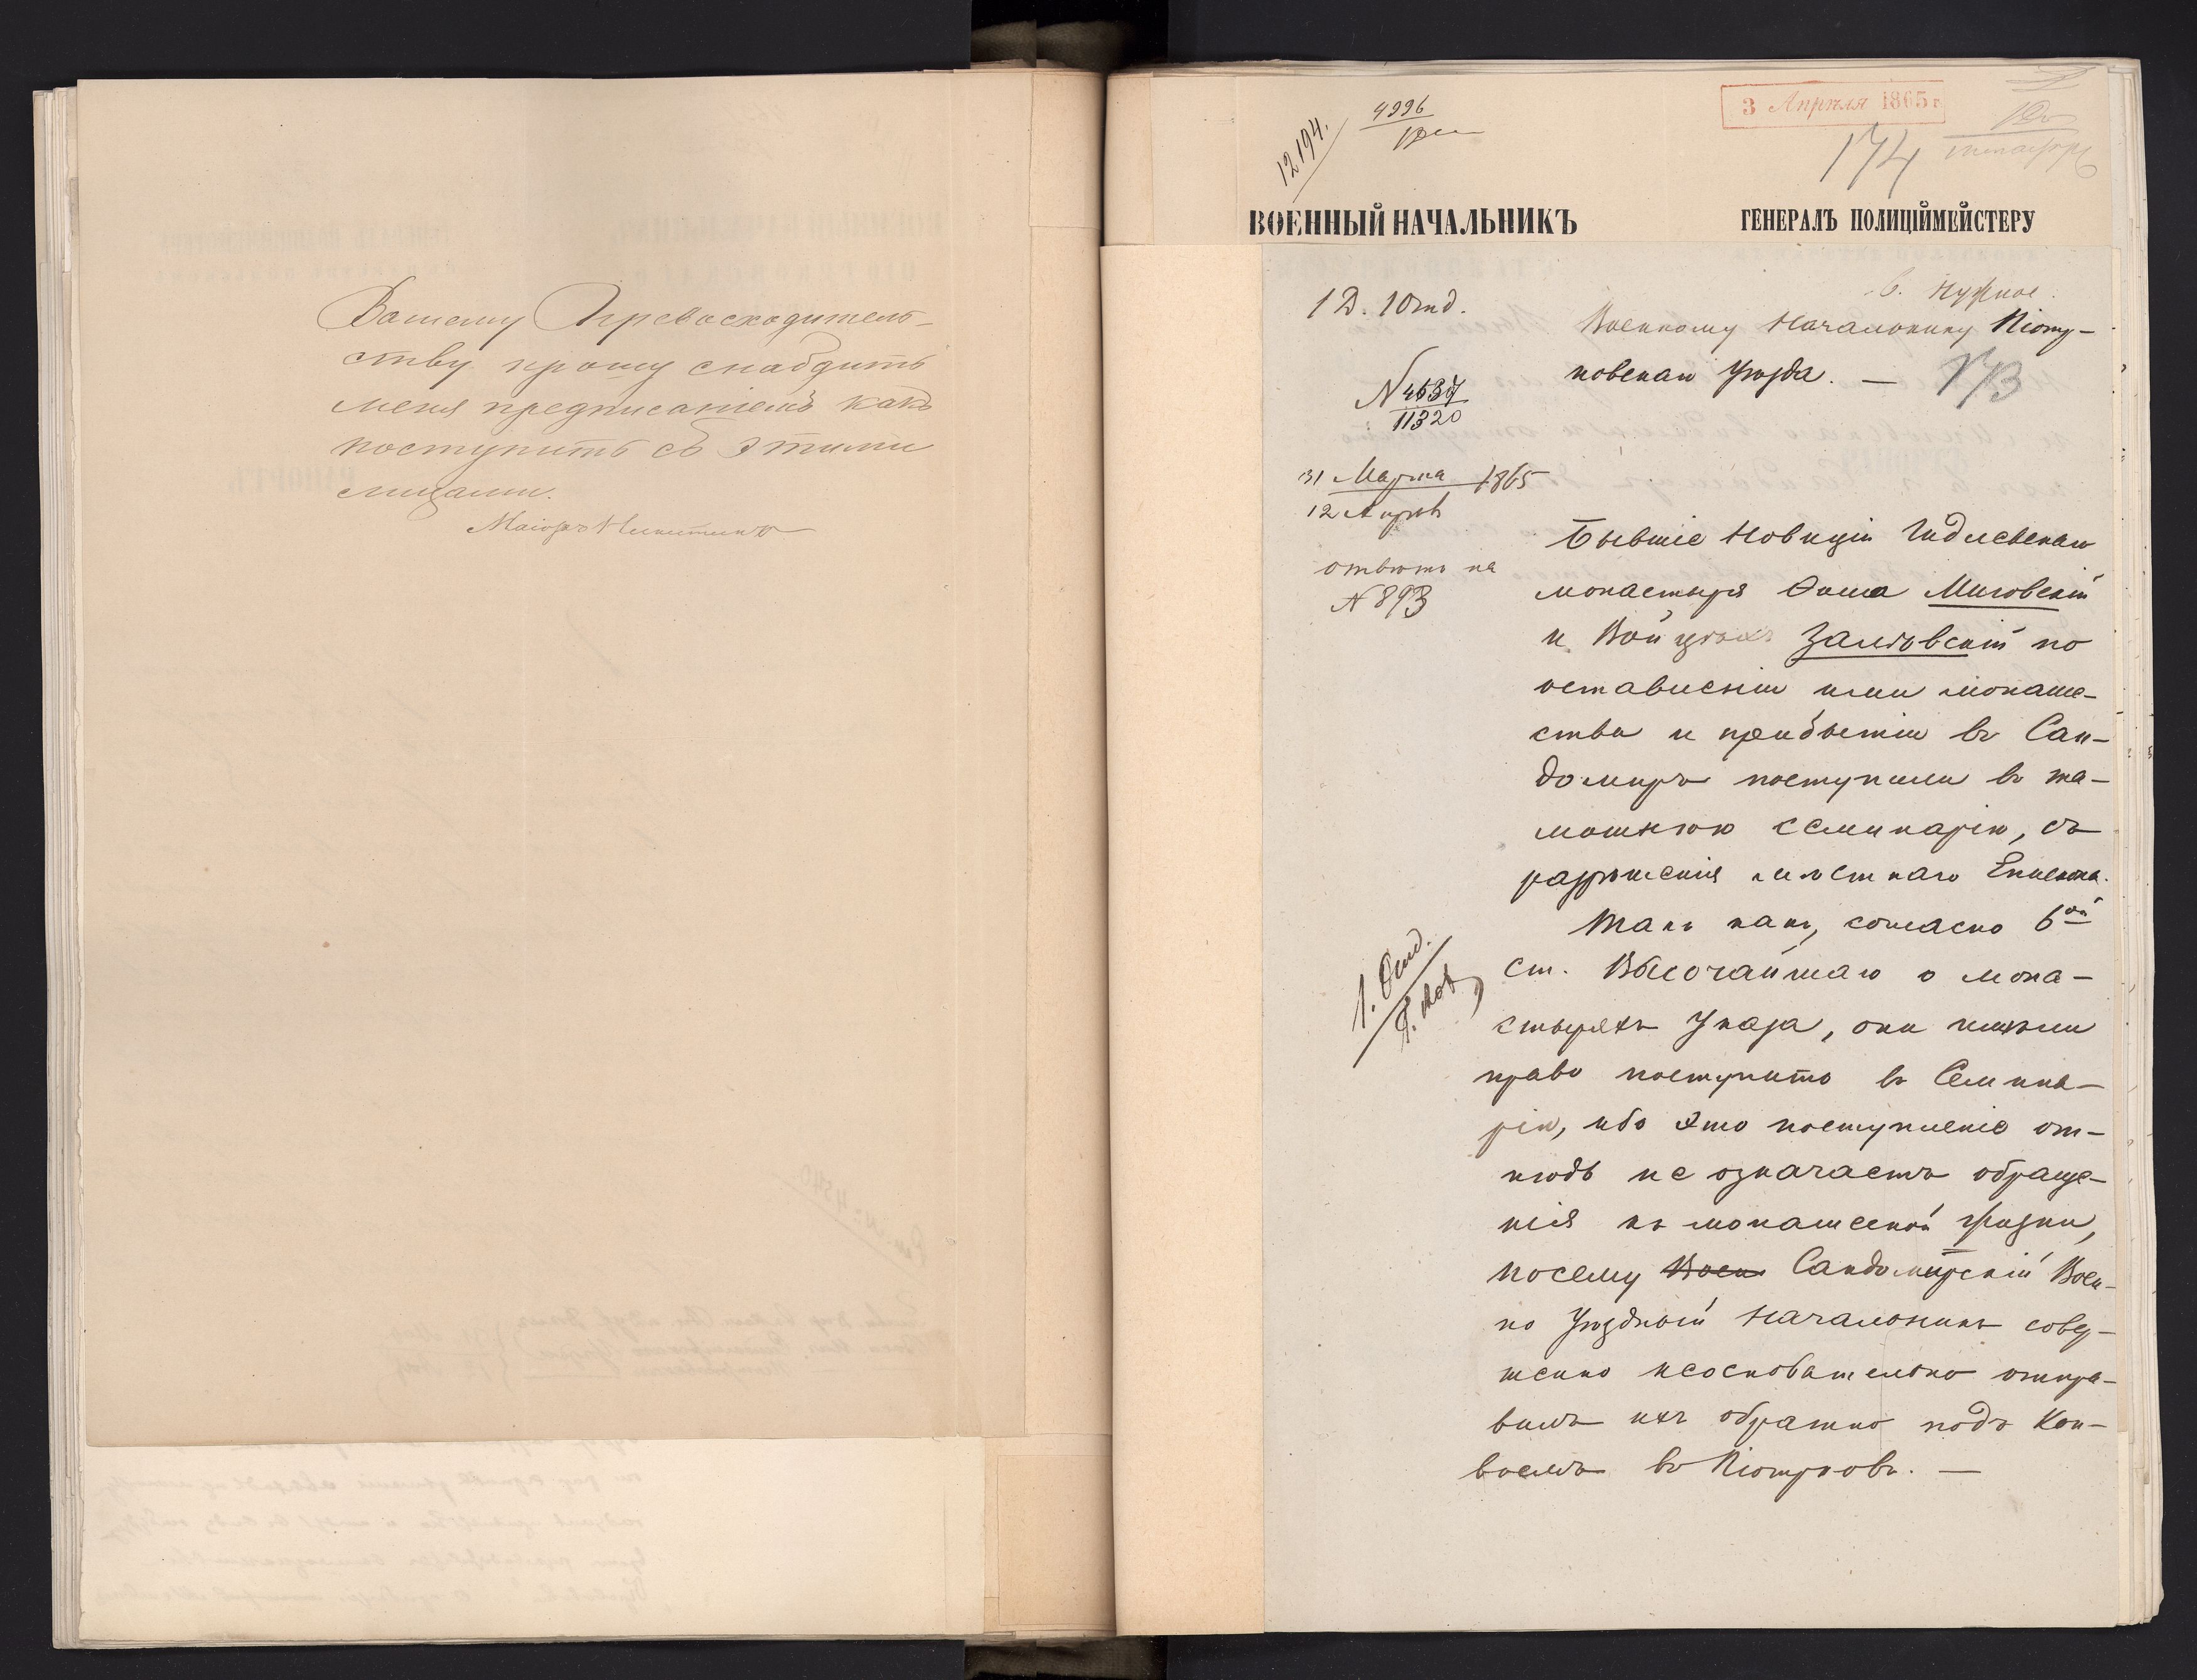 Вашему Превосходитель-
ству прошу снабдить
меня предписанiемъ какъ
поступить съ этими
лицами.
Маiоръ Никитинъ
12194.
4996
3 Апрѣля 1865 г.
174
ВОЕННЫЙ НАЧАЛЬНИКЪ
ГЕНЕРАЛЪ ПОЛИЦIЙМЕЙСТЕРУ
1 Д. 1 Отд.
В. Нужное.
Военному Начальнику Пiотр-
ковскаго Уѣзда. —
173
N 4637
11320
31 Марта 1865
12 Апрѣл
отвѣтъ на
N 893
Бывшiе Новицiи Гидлевскаго
монастыря Фома Миговскiй
и Войцѣхъ Залѣвскiй по
оставленiи ими монаше-
ства и прибытiи въ Сан-
домиръ поступили въ та-
мошнюю семинарiю, съ
разрѣшенiя мѣстнаго Епископа.
Такъ какъ, согласно 6ой
ст. Высочайшаго о мона-
стыряхъ Указа, они имѣли
право поступить въ Семина-
рiю, ибо это поступленiе от-
нюдь не означаетъ обраще-
нiя къ монашеской жизни,
посему Воен Сандомирскiй Воен-
но Уѣздный Начальникъ совер-
шенно неосновательно отпра-
вилъ ихъ обратно подъ Кон-
воемъ въ Пiотрковъ. —
1. Отд.